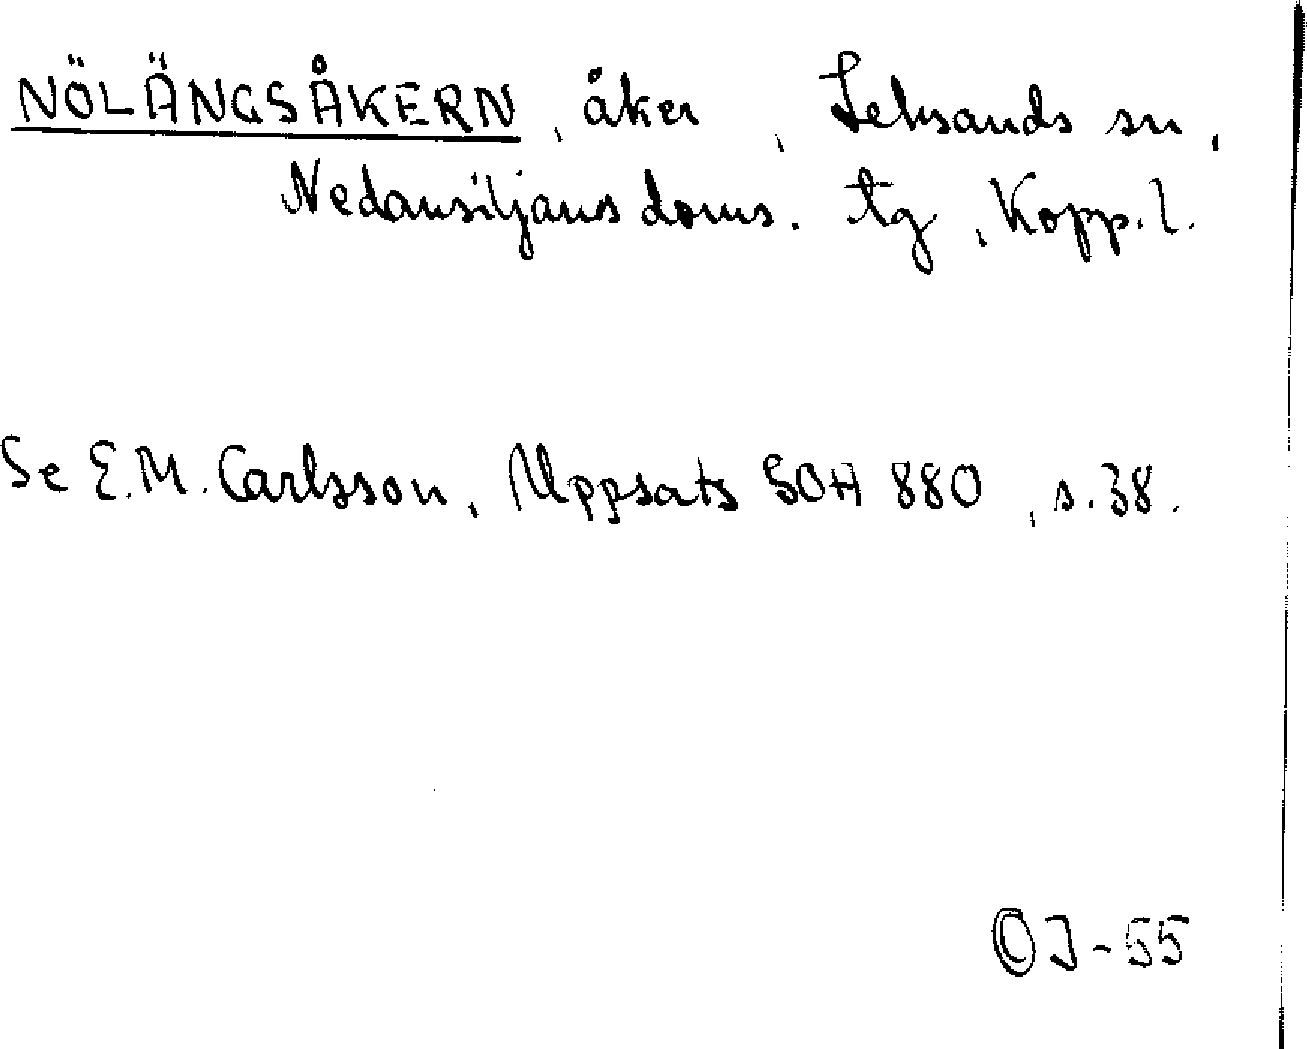 NÖLÄNGSÅKERN, åker, Leksands sn,
Nedansiljans doms. tg, Kopp. l.
Se E.M. Carlsson, Uppsats SOH 880, s. 38.
©J-55